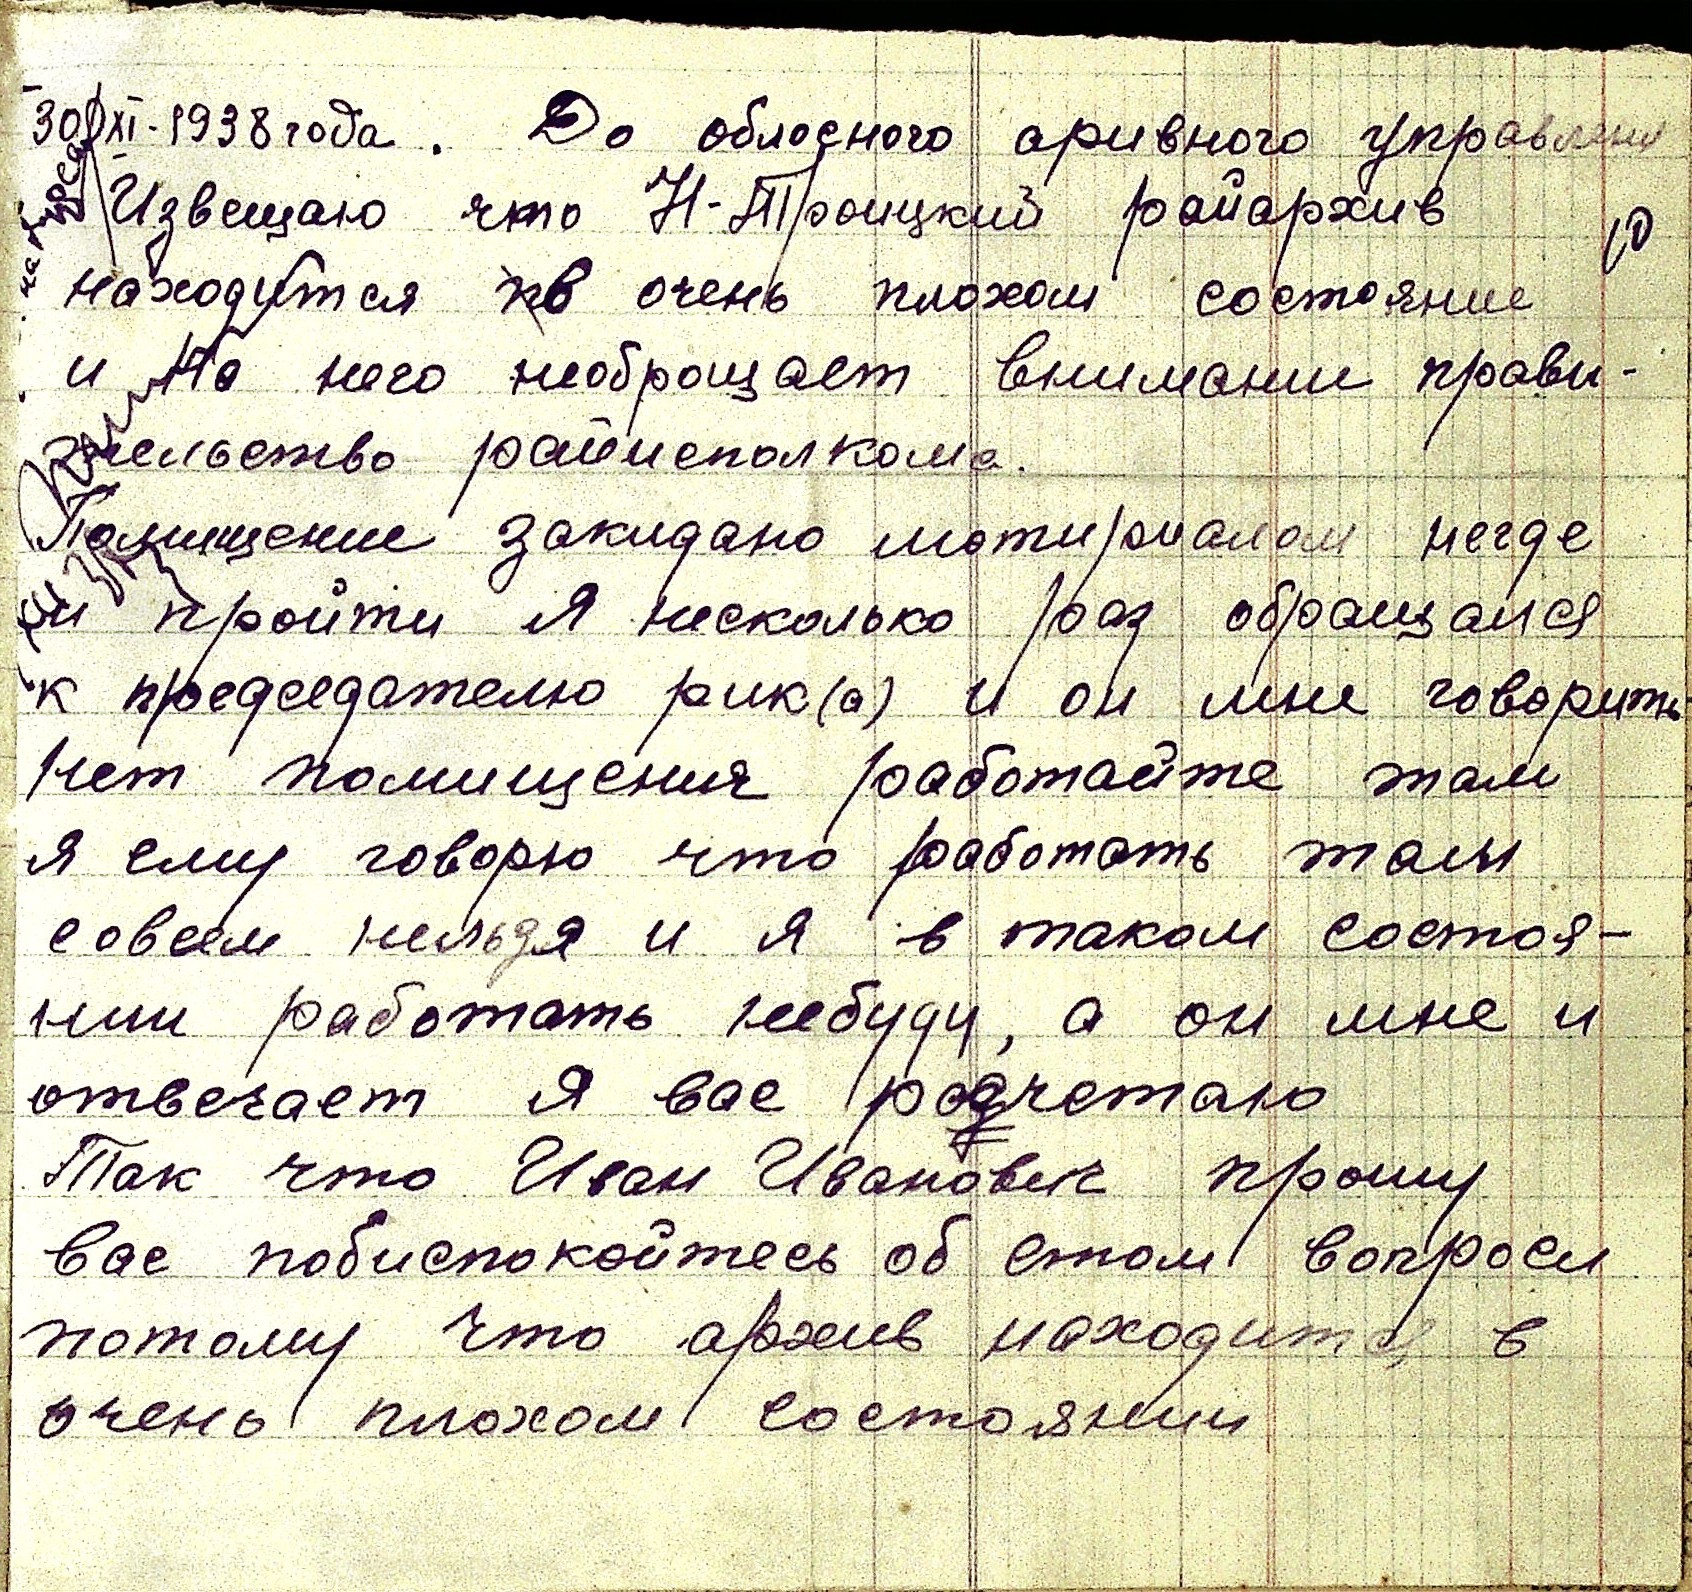 30/XI-1938 года. До облосного аривного управления
Извещаю что Н-Троицкий райархив
находится в очень плохом состояние
и На него необращает внимании прави-
тельство райисполкома.
Помищение закидано мотириалом негде
и пройти Я несколько раз обращался
к председателю рик(а) и он мне говорить
Нет помищения работайте там
я ему говорю что работать там
совсем нельзя и я в таком состоя-
нии работать небуду, а он мне и
отвечает Я вас росчетаю
Так что Иван Ивановеч прошу
вас побиспокойтесь об етом вопросе
потому что архив находится в
очень плохом состоянии